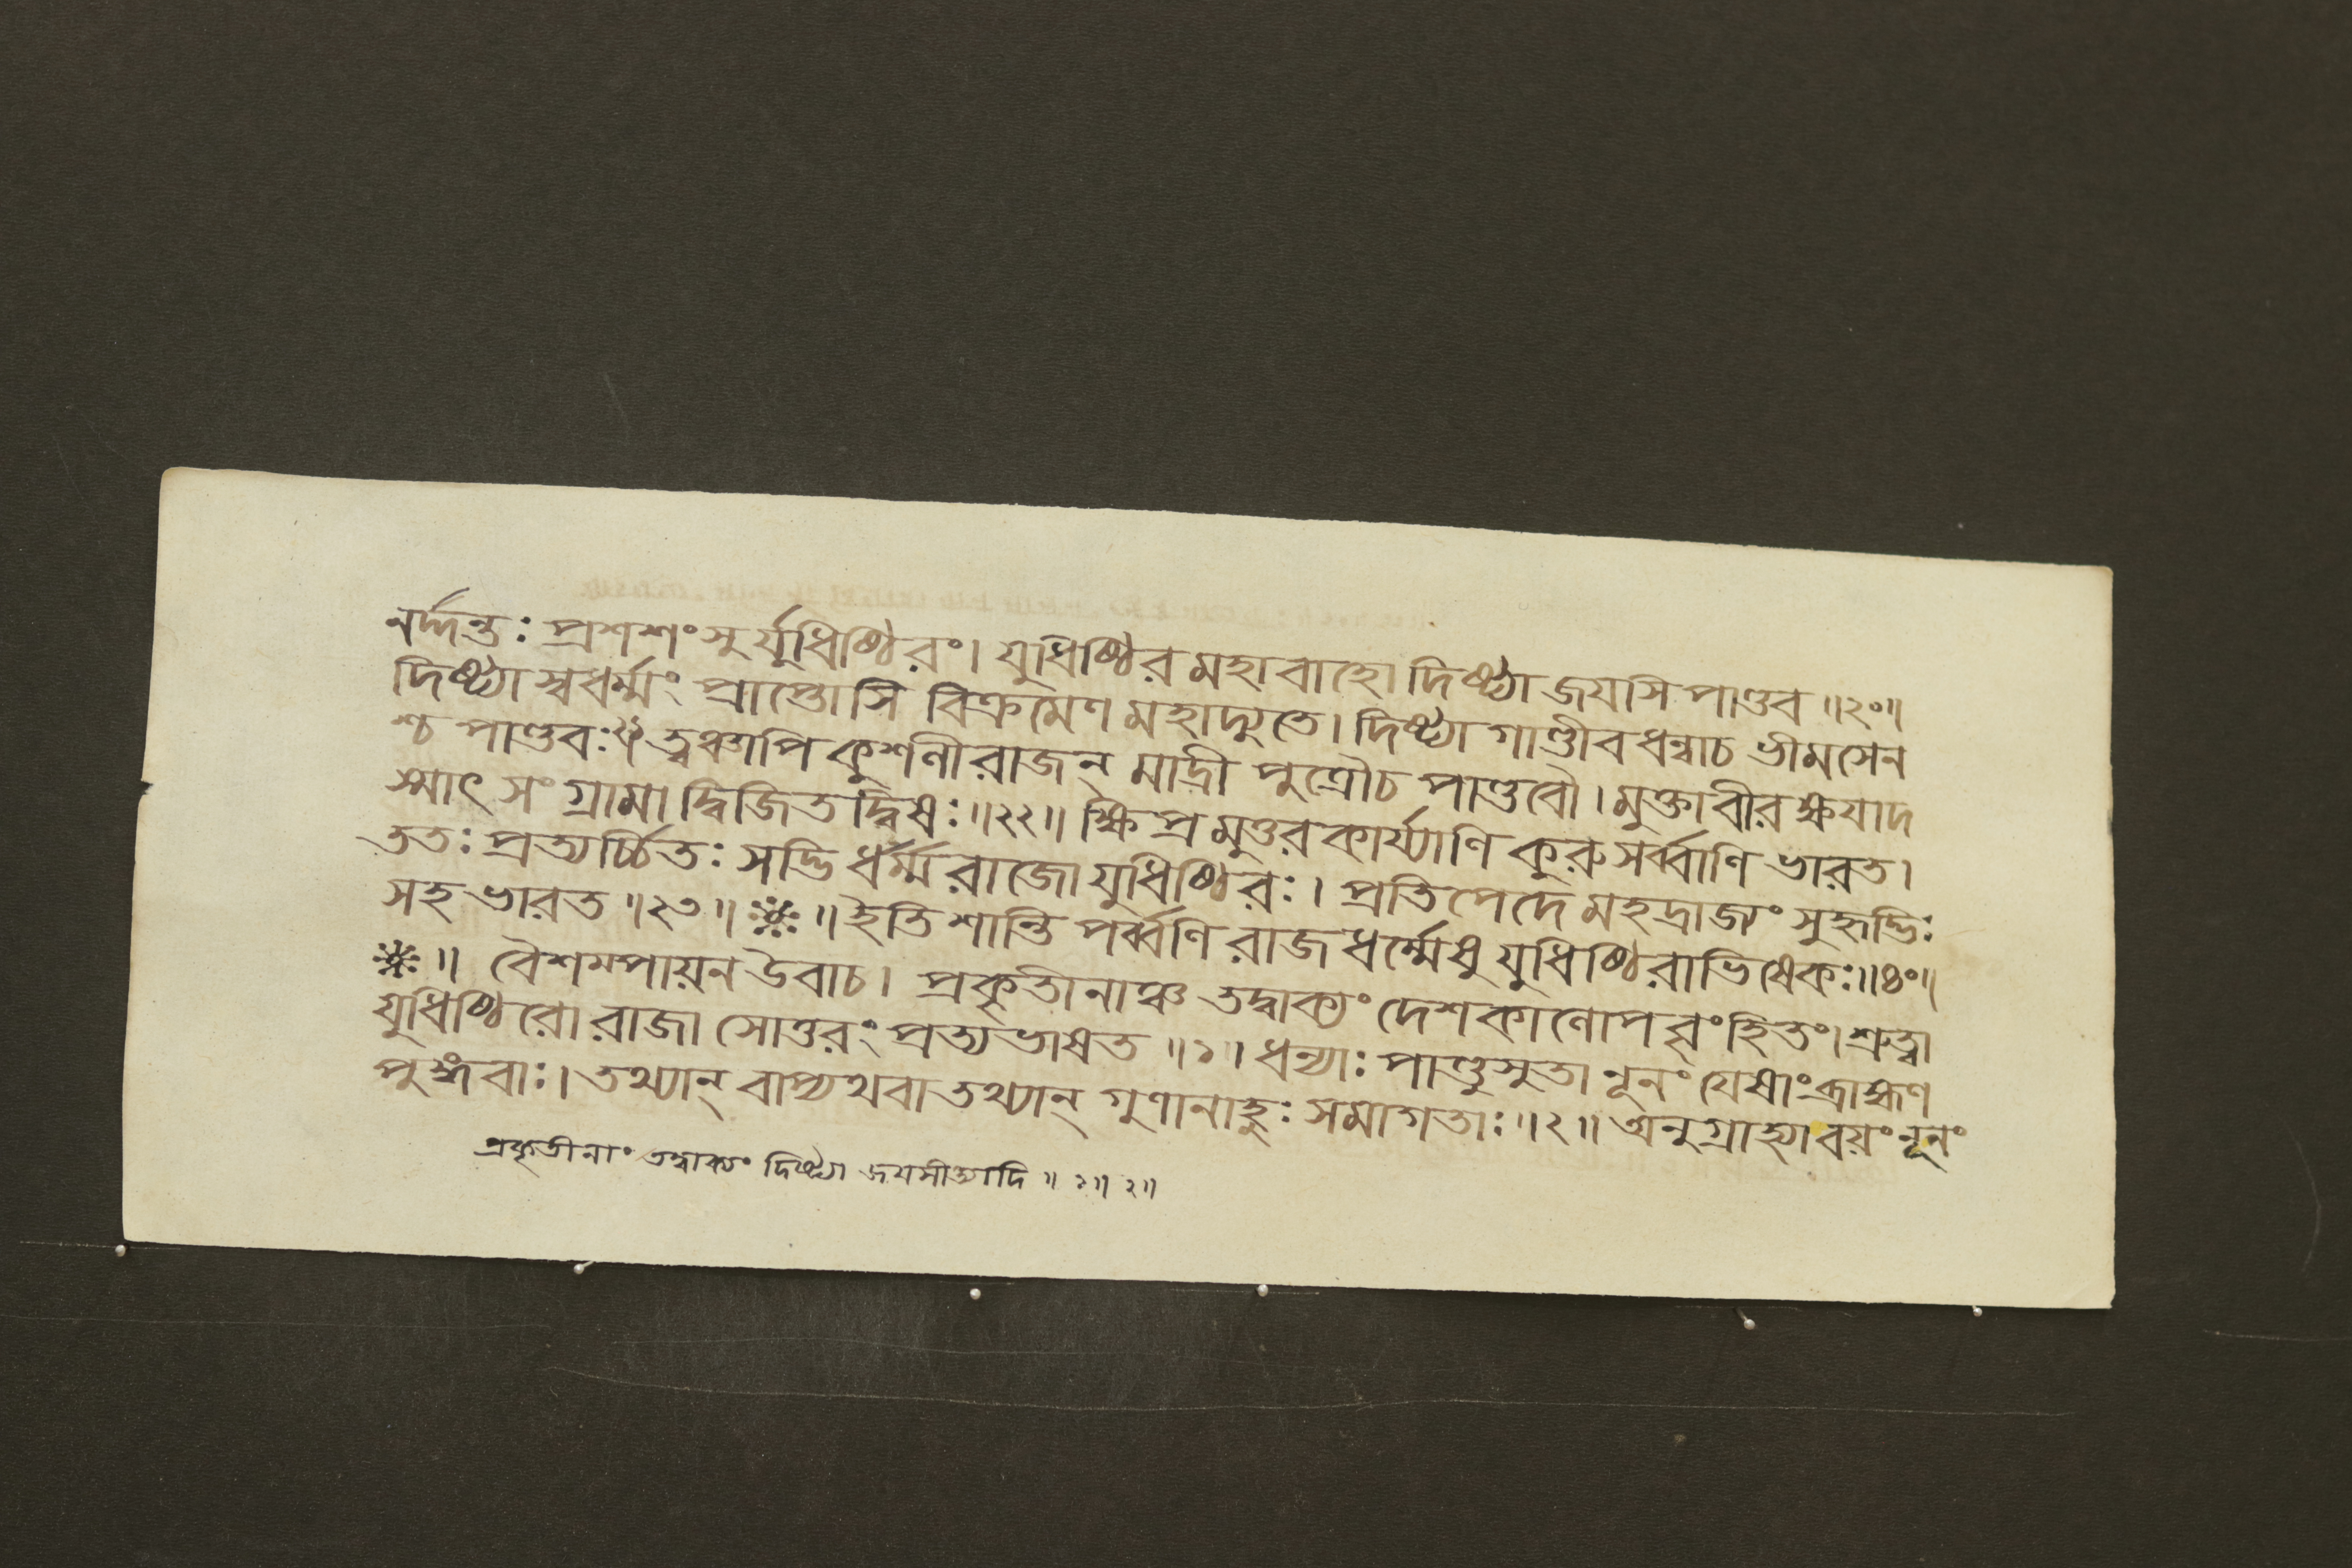 নর্দ্দন্তঃ প্রশশংসুর্যুধিষ্ঠিরং। যুধিষ্ঠির মহাবাহো দিষ্ট্যা জয়সি পাণ্ডব ॥২০॥
দিষ্ট্যা স্বধর্ম্মং প্রাপ্তোসি বিক্রমেণ মহাদ্যুতে। দিষ্ট্যা গাণ্ডীবধন্বাচ ভীমসেন
শ্চ পাণ্ডবঃ ত্বঞ্চাপি কুশলী রাজন্ মাদ্রী পুত্রৌচ পাণ্ডবৌ। মুক্তা বীরক্ষয়াদ
স্মাৎ সংগ্রামাদ্বিজিতদ্বিষঃ॥২২॥ ক্ষিপ্রমুত্তরকার্য্যাণি কুরু সর্ব্বাণি ভারত।
ততঃ প্রত্যর্চ্চিতঃ সদ্ভির্ধর্ম্মরাজো যুধিষ্ঠিরঃ। প্রতিপেদে মহদ্রাজ্যং সুহৃদ্ভিঃ
সহ ভারত ॥২৩॥ ※ ॥ ইতি শান্তি পর্ব্বণি রাজধর্ম্মেষু যুধিষ্ঠিরাভিষেকঃ॥৪০॥
※॥ বৈশম্পায়ন উবাচ। প্রকৃতীনাঞ্চ তদ্বাক্যং দেশকালোপবৃংহিতং। শ্রুত্বা
যুধিষ্ঠিরো রাজা সোত্তরং প্রত্যভাষত ॥১॥ ধন্যাঃ পাণ্ডুসুতা নূনং যেষাং ব্রাহ্মণ
পুঙ্গবাঃ। তথ্যান্ বাপ্যথবাতথ্যান্ গুণানাহুঃ সমাগতাঃ॥২॥ অনুগ্রাহ্যা বয়ং নূনং
প্রকৃতীনাং তদ্বাক্যং দিষ্ট্যা জয়সীত্যাদি ॥ ১॥ ২॥